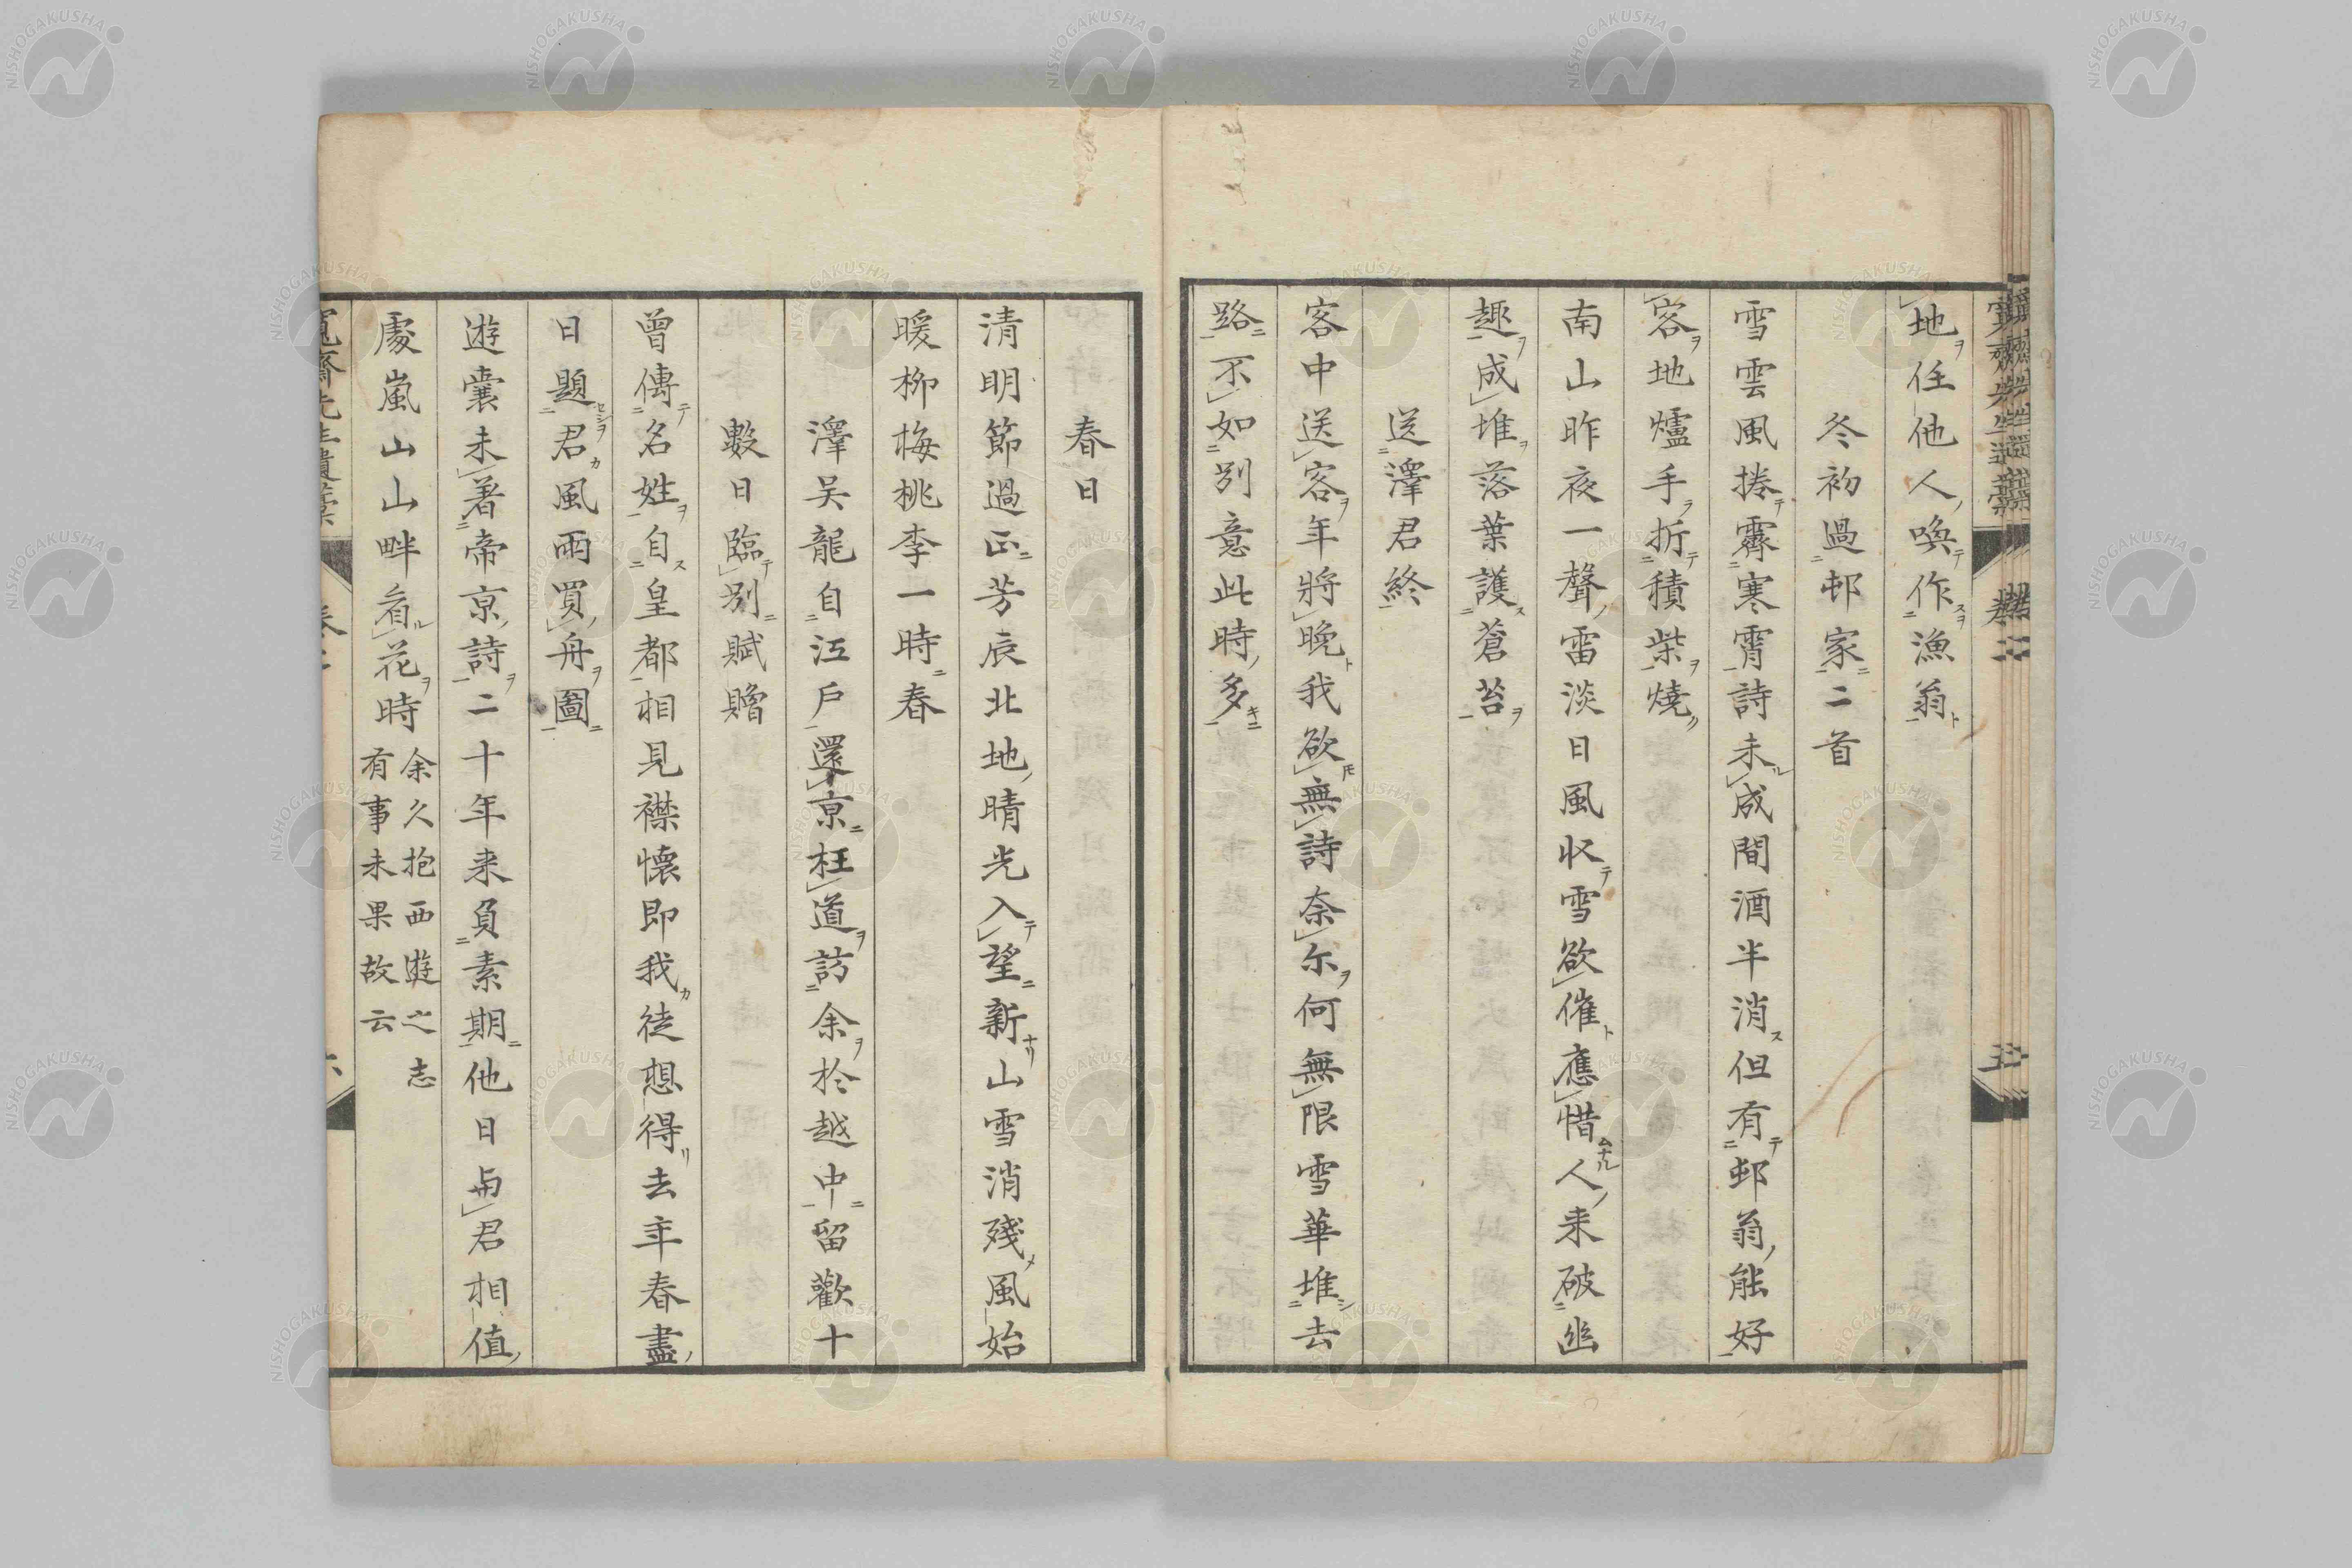 地任他人喚作漁翁
冬初過邨家二首
雪雲風捲霽寒霄詩未成間酒半消但有邨翁能好
客地爐手折積柴燒
南山昨夜一聲雷淡日風收雪欲催應惜人来破幽
趣成堆落葉護蒼苔
送澤君終
客中送客年將晚我欲無詩奈尓何無限雪華堆去
路不如別意此時多
春日
清明節過正芳辰北地晴光入望新山雪消殘風始
暖柳梅桃李一時春
澤吴龍自江戶還京枉道訪余於越中留歡十
數日臨別賦贈
曾傳名姓自皇都相見襟懷即我徒想得去年春盡
日題君風雨買舟圖
遊囊未著帝京詩二十年来負素期他日与君相值
處嵐山山畔看花時
余久抱西遊之志
有事未果故云
寬齋先生遺藁
卷二
五
NISHOGAKUSHA